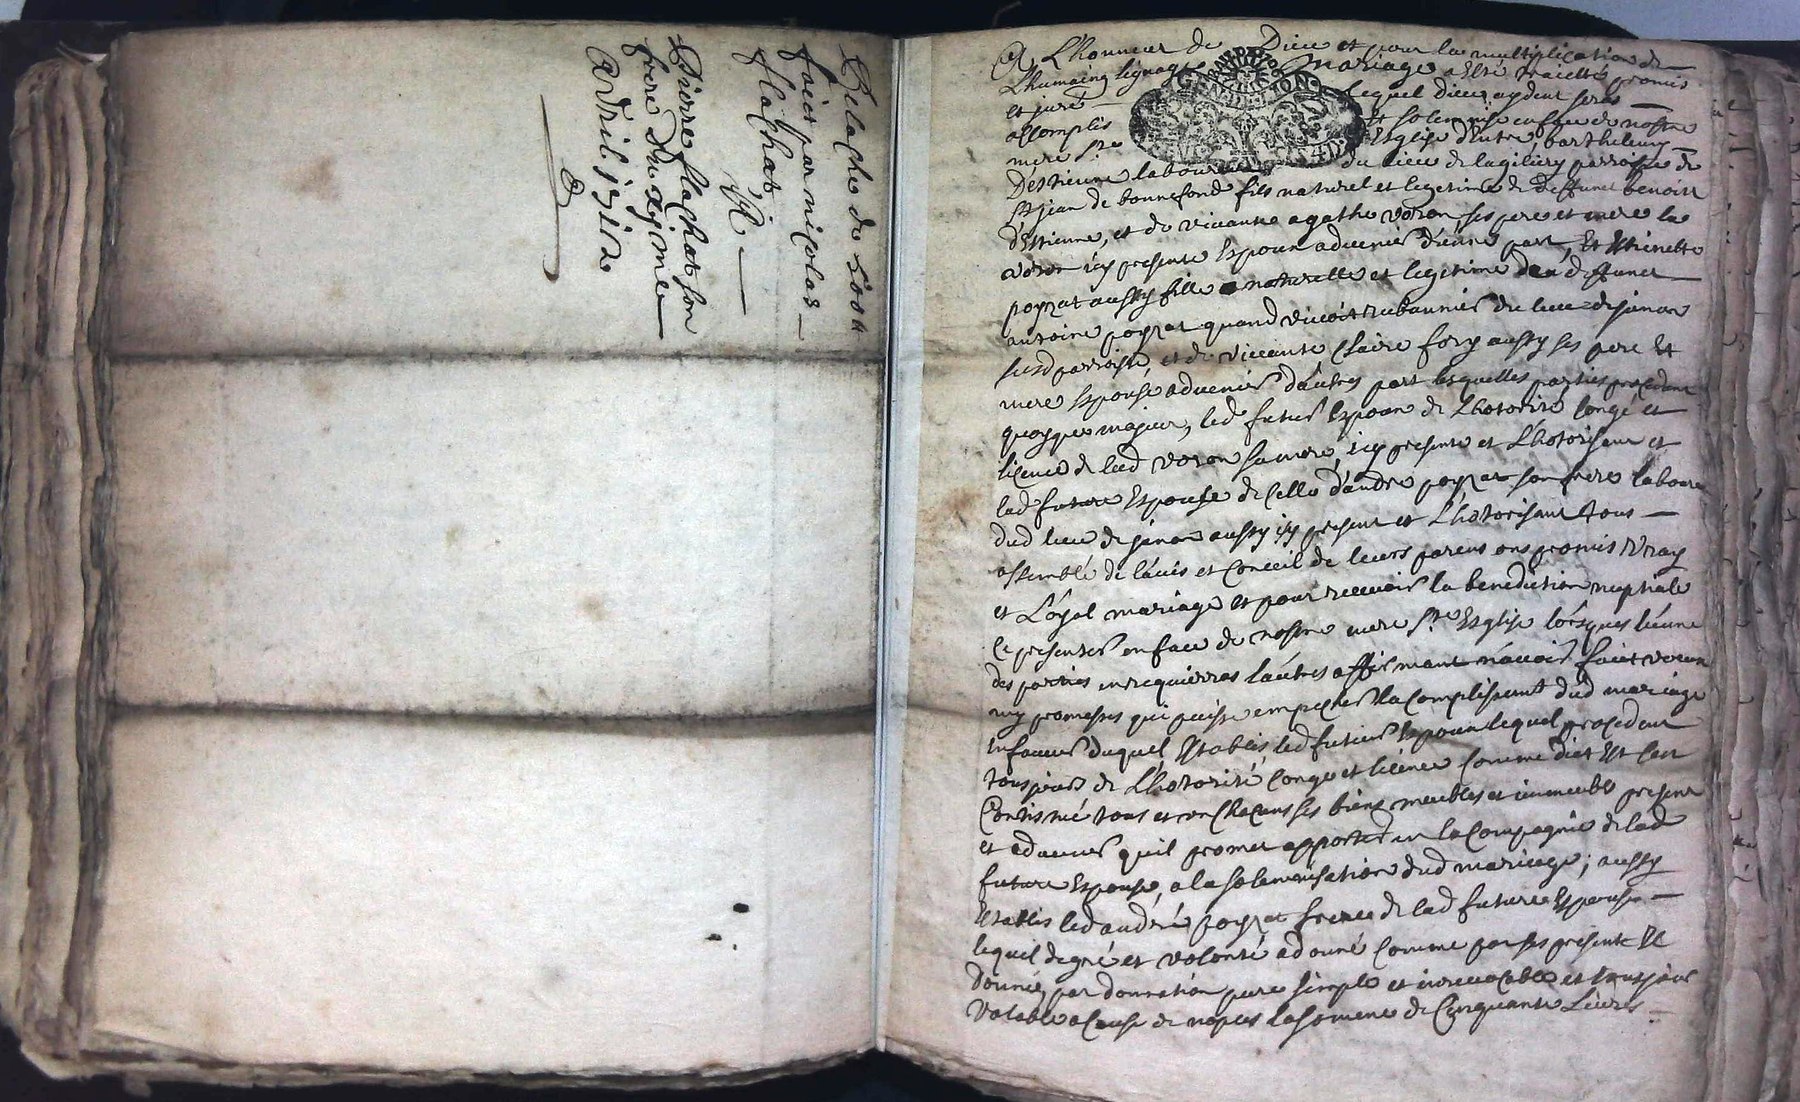 Relache de 500#
faict par nicolas
flachat
à
Pierre flachat son
frere du dixiesme
Avril 1712
A L'honneur de Dieu et pour la multiplication de
L'humaing lignage mariage a esté traicté promis
et juré lequel dieu aydent seras
accomplis et solemnisé en face de nostre
mere s.te Esglise D'entre barthelemy
D'estienne laboureur du lieu de lagiliery parroisse de
st jean de bonnefond fils naturel et legitime de deffunct benoist
d'Estienne, et de vivante agathe voron ses pere et mere la
voron icy presente Espoux advenir d'une part, Et Estienette
poyzat aussy fille naturelle et legitime de deffunct
antoine poyzat quand vivoit rubannier du lieu de janon
susd parroisse, et de vivante claire fory aussy ses pere Et
mere Espouse advenir d'autres part lesquelles parties procedant
quoyque majeur, led futur Espoux de Lhotorité congé et
licence de lad voron sa mere, icy presente et Lhotorisant et
lad future Espouse de celle d'andré poyzat son frere laboureur
dud lieu de janon aussy icy present et Lhotorisant tous
assemblé de l'avis et conceil de leurs parens ont promis vray
et Loyal mariage et pour recevoir la benediction nuptiale
ce presenter en face de nostre mere s.te Esglise lorsques l'eune
des parties en requierras l'autres affirmant n'avoir faict voeux
ny promesses qui puisse empecher l'acomplissement dud mariage
En faveur duquel, Establis led futur Espoux lequel procedant
tousjours de Lhotorité, conge et licence comme dict Est cest
Constitué tous et un chacuns ses biens meubles et immeuble present
et advenir quil promet apporter en la Compagnie de lad
future Espouse, a la solemnisation dud mariage; aussy
Establis led andré poyzat frere de lad future Espouse
lequel de gré et volonté a donné comme par ses presente Il
donne, par donnation pure simple et irrevocable et tousjour
valable a Cause de nopces la somme de Cinquante Livres